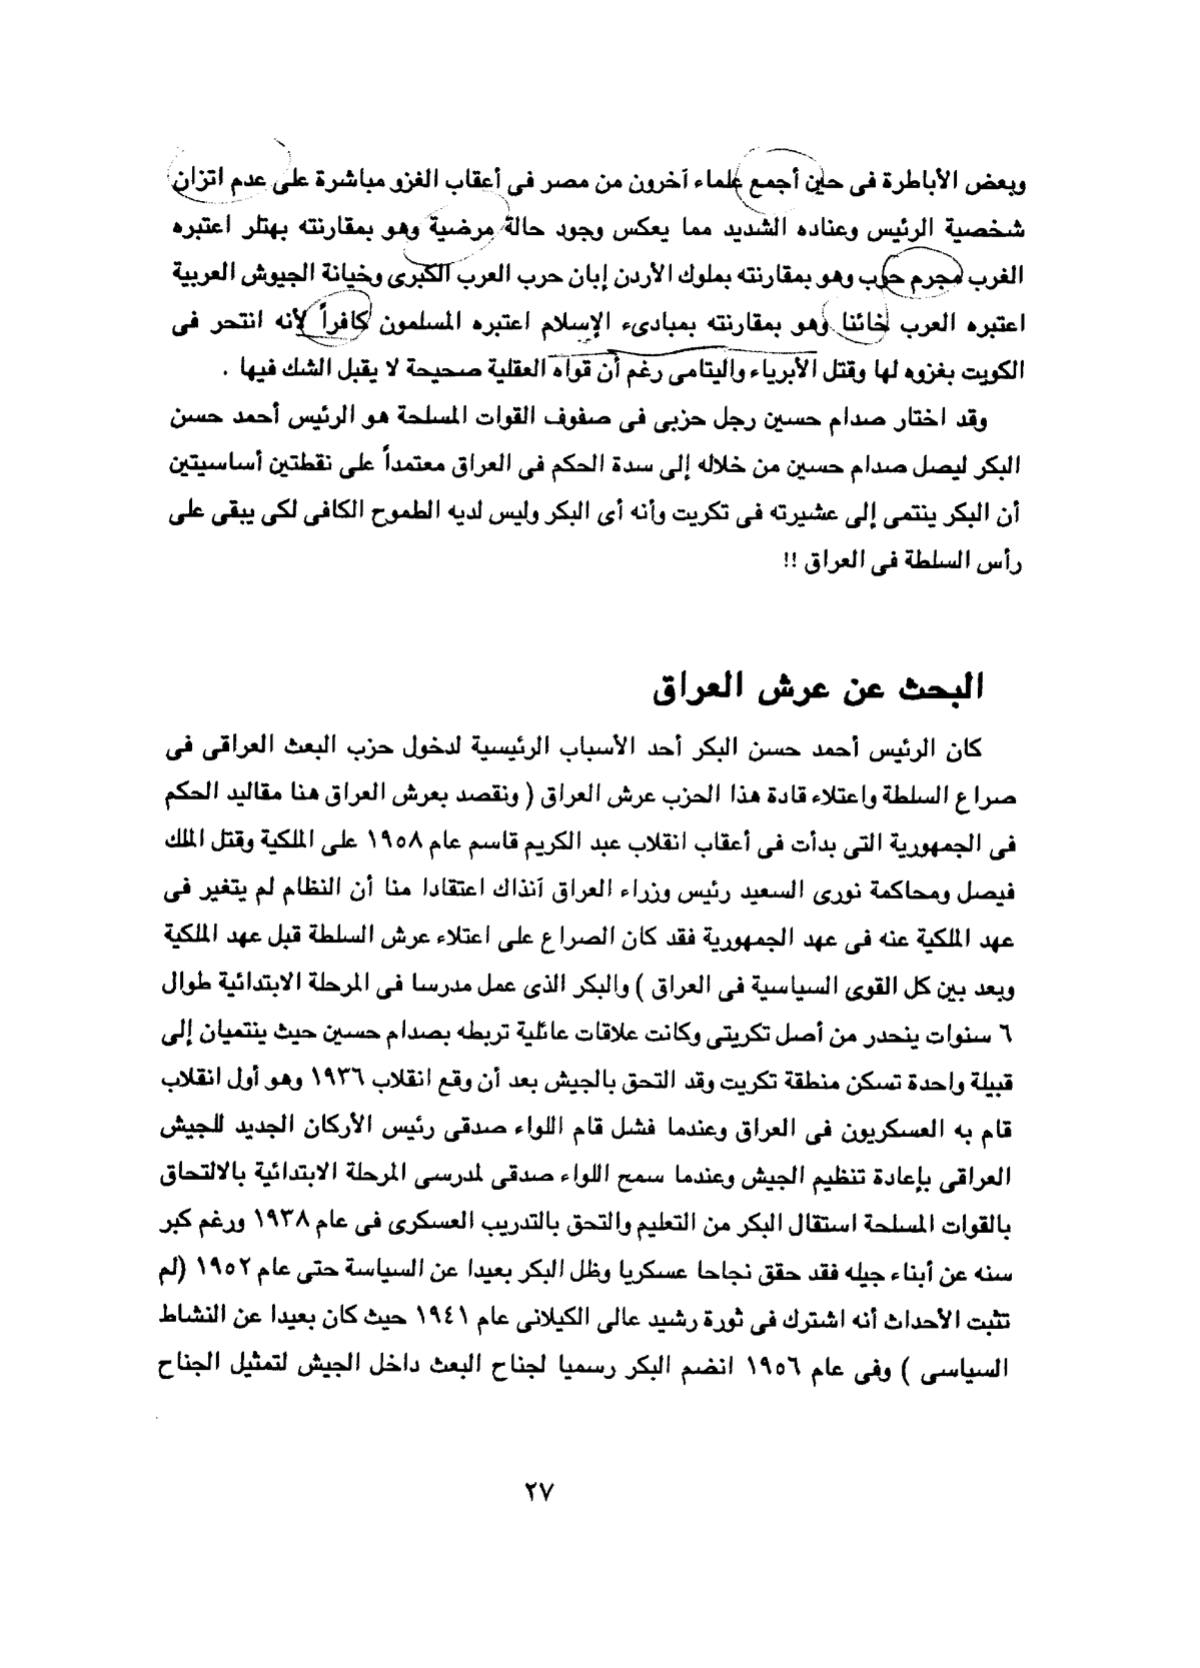 وبعض الأباطرة فى حين أجمع علماء آخرون من مصر فى أعقاب الغزو مباشرة على عدم اتزان
شخصية الرئيس وعناده الشديد مما يعكس وجود حالة مرضية وهو بمقارنته بهتلر اعتبره
الغرب مجرم حرب وهو بمقارنته بملوك الأردن إبان حرب العرب الكبرى وخيانة الجيوش العربية
اعتبره العرب خائنا وهو بمقارنته بمبادىء الإسلام اعتبره المسلمون كافراً لأنه انتحر فى
الكويت بغزوه لها وقتل الأبرياء واليتامى رغم أن قواه العقلية صحيحة لا يقبل الشك فيها .
وقد اختار صدام حسين رجل حزبى فى صفوف القوات المسلحة هو الرئيس أحمد حسن
البكر ليصل صدام حسين من خلاله إلى سدة الحكم فى العراق معتمداً على نقطتين أساسيتين
أن البكر ينتمى إلى عشيرته فى تكريت وأنه أى البكر وليس لديه الطموح الكافى لكى يبقى على
رأس السلطة فى العراق !!
البحث عن عرش العراق
كان الرئيس أحمد حسن البكر أحد الأسباب الرئيسية لدخول حزب البعث العراقى فى
صراع السلطة واعتلاء قادة هذا الحزب عرش العراق ( ونقصد بعرش العراق هنا مقاليد الحكم
فى الجمهورية التى بدأت فى أعقاب انقلاب عبد الكريم قاسم عام ١٩٥٨ على الملكية وقتل الملك
فيصل ومحاكمة نورى السعيد رئيس وزراء العراق آنذاك اعتقادا منا أن النظام لم يتغير فى
عهد الملكية عنه فى عهد الجمهورية فقد كان الصراع على اعتلاء عرش السلطة قبل عهد الملكية
وبعد بين كل القوى السياسية فى العراق ) والبكر الذى عمل مدرسا فى المرحلة الابتدائية طوال
٦ سنوات ينحدر من أصل تكريتى وكانت علاقات عائلية تربطه بصدام حسين حيث ينتميان إلى
قبيلة واحدة تسكن منطقة تكريت وقد التحق بالجيش بعد أن وقع انقلاب ١٩٣٦ وهو أول انقلاب
قام به العسكريون فى العراق وعندما فشل قام اللواء صدقى رئيس الأركان الجديد للجيش
العراقى بإعادة تنظيم الجيش وعندما سمح اللواء صدقى لمدرسى المرحلة الابتدائية بالالتحاق
بالقوات المسلحة استقال البكر من التعليم والتحق بالتدريب العسكرى فى عام ١٩٣٨ ورغم كبر
سنه عن أبناء جيله فقد حقق نجاحا عسكريا وظل البكر بعيدا عن السياسة حتى عام ١٩٥٢ (لم
تثبت الأحداث أنه اشترك فى ثورة رشيد عالى الكيلانى عام ١٩٤١ حيث كان بعيدا عن النشاط
السياسى ) وفى عام ١٩٥٦ انضم البكر رسميا لجناح البعث داخل الجيش لتمثيل الجناح
٢٧